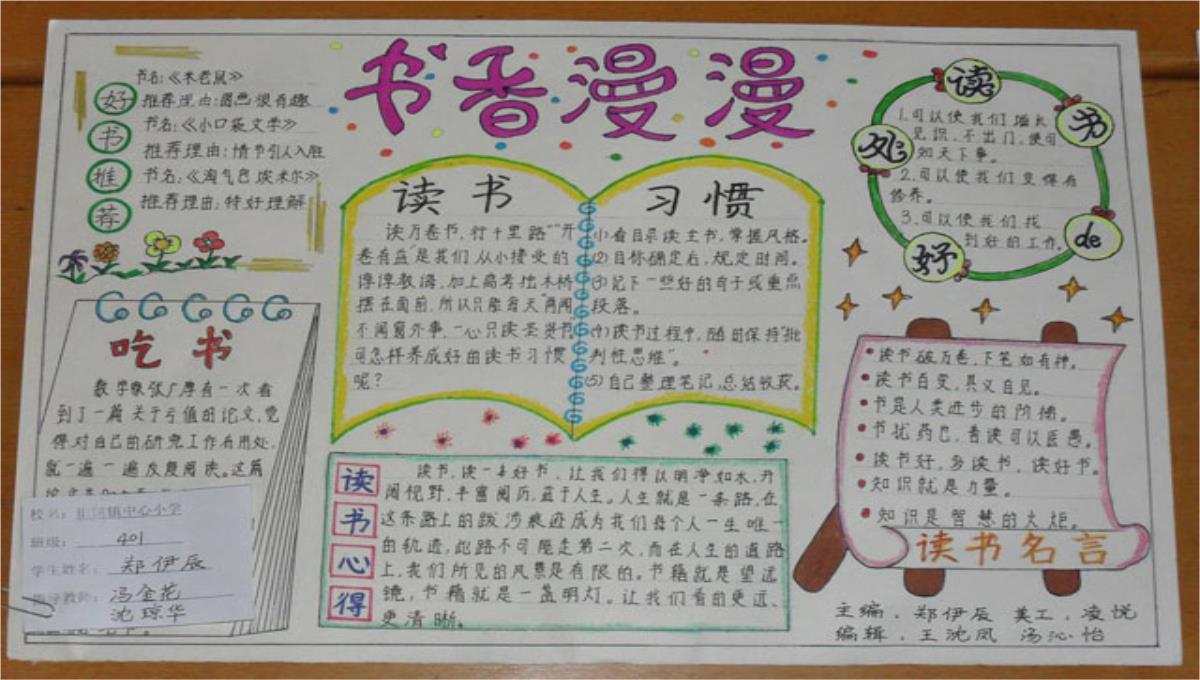 书香漫漫
好书推荐
书名:《米老鼠》
推荐理由:图画很有趣
书名:《小口袋文学》
推荐理由:情节引人入胜
书名:《淘气包埃米尔》
推荐理由:特好理解
读书习惯
读万卷书,行千里路""开
卷有益"是我们从小接受的
谆谆教诲,加上高考独木桥
摆在面前,所以只能每天"两闻
不闻窗外事,一心只读圣贤书"
可怎样养成好的读书习惯
呢?
小看目录读主书,掌握风格。
(2)目标确定后,规定时间。
(3)记下一些好的句子或重点
段落。
(4)读书过程中,随时保持"批
判性思维"。
(5)自己整理笔记,总结收获。
读书de好处
1.可以使我们增长
见识,不出门,便可
知天下事。
2.可以使我们变得有
修养。
3.可以使我们找
到好的工作。
吃书
数学家张广厚有一次看
到了一篇关于亏值的论文,觉
得对自己的研究工作有用处,
就一遍一遍反复阅读。这篇
校名:中心小学
班级:401
学生姓名:郑伊辰
指导教师:冯金花
沈琼华
读书心得
读书,读一本好书,让我们得以明净如水,开
阔视野,丰富阅历,益于人生。人生就是一条路,在
这条路上的跋涉痕迹成为我们每个人一生唯一
的轨迹,此路不可能走第二次,而在人生的道路
上,我们所见的风景是有限的。书籍就是望远
镜,书籍就是一盏明灯。让我们看的更远、
更清晰。
读书破万卷,下笔如有神。
读书百变,其义自见。
书是人类进步的阶梯。
书犹药也,善读可以医愚。
读书好,多读书,读好书。
知识就是力量。
知识是智慧的火炬。
读书名言
主编.郑伊辰 美工.凌悦
编辑.王沈凤 汤沁怡